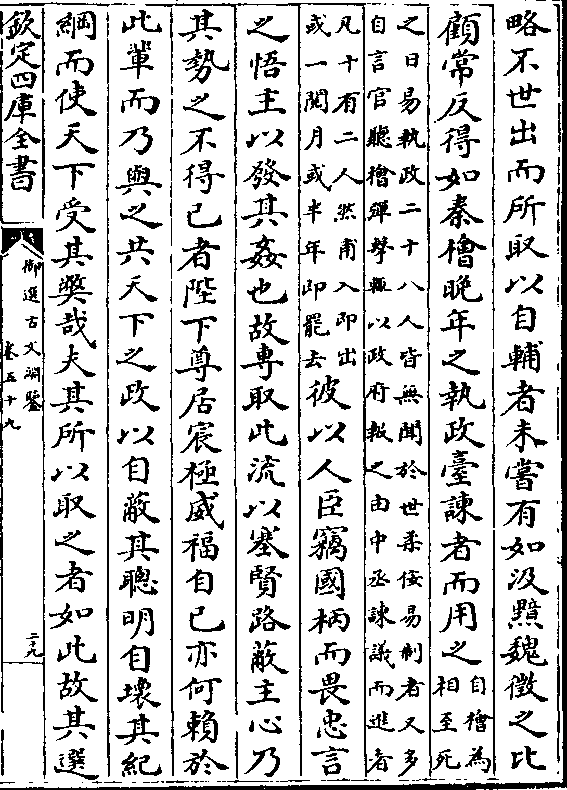 略不世出而所取以自輔者未嘗有如汲黯魏徵之比
顧常反得如秦檜晚年之執政臺諫者而用之
自檜為
相至死
之日易執政二十八人皆無聞於世柔佞易制者又多
自言官聽檜彈擊輙以政府報之由中丞諫議而進者
凡十有二人然甫入即出
或一閱月或半年即罷去
彼以人臣竊國柄而畏忠言
之悟主以發其姦也故專取此流以塞賢路蔽主心乃
其勢之不得已者陛下尊居宸極威福自己亦何賴於
此輩而乃與之共天下之政以自蔽其聰明自壞其紀
綱而使天下受其獘哉夫其所以取之者如此故其選
欽定四庫全書
御選古文淵鑒
卷五十九
二九